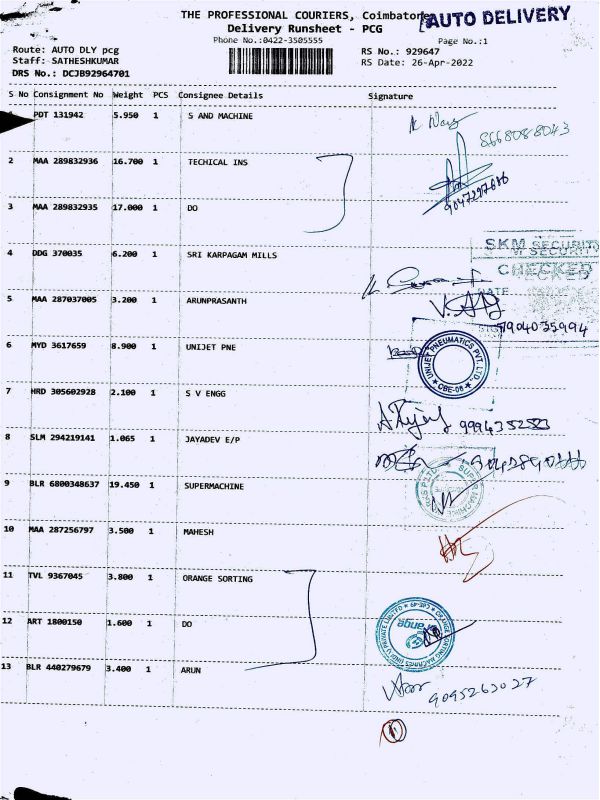 THE PROFESSIONAL COURIERS, Coimbatore
AUTO DELIVERY
Delivery Runsheet - PCG
Phone No.:0422-3505555
Page No.:1
Route: AUTO DLY pcg
RS No.: 929647
Staff: SATHESHKUMAR
RS Date: 26-Apr-2022
DRS No.: DCJB92964701
S No Consignment No Weight PCS Consignee Details Signature
PDT 131942 5.950 1 S AND MACHINE
8668088043
2 MAA 289832936 16.700 1 TECHICAL INS
9047297686
3 MAA 289832935 17.000 1 DO
SKM SECURITY
CHECKED
DATE
4 DDG 370035 6.200 1 SRI KARPAGAM MILLS
5 MAA 287037005 3.200 1 ARUNPRASANTH
7904035994
6 MYD 3617659 8.900 1 UNIJET PNE
UNIJET PNEUMATICS PVT. LTD.
CBE-06
7 HRD 305602928 2.100 1 S V ENGG
8 SLM 294219141 1.065 1 JAYADEV E/P
9 BLR 6800348637 19.450 1 SUPERMACHINE
10 MAA 287256797 3.500 1 MAHESH
11 TVL 9367045 3.800 1 ORANGE SORTING
12 ART 1800150 1.600 1 DO
13 BLR 440279679 3.400 1 ARUN
9095263027